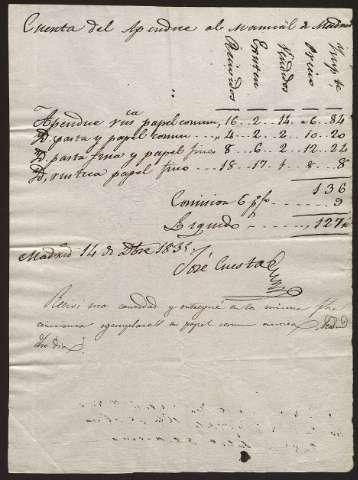 Cuenta del Apendice al Manual de Madrid
Recividos Existen Vendidos Precio Importe
Apendice rustica papel comun, 16 .. 2 .. 14 .. 6 .. 84
Id. pasta y papel comun .... 4 .. 2 .. 2 .. 10 .. 20
Id. pasta fina y papel fino 8 .. 6 .. 2 .. 12 .. 24
Id. rustica papel fino .... 18 .. 17 .. 1 .. 8 .. 8
136
Comision 6 p% ... 9
Liquido ... 127
Madrid 14 de Dbre 1835
José Cuesta
Recivi esta cantidad y entregué en la misma
ejemplares en papel comun Madrid
dho dia